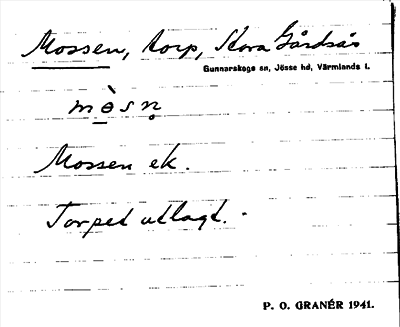 Mossen, torp, Stora Gårdsås
Gunnarskogs sn, Jösse hd, Värmlands l.
mòsn̥
Mossen ek.
Torpet utlagt.
P. O. GRANÉR 1941.